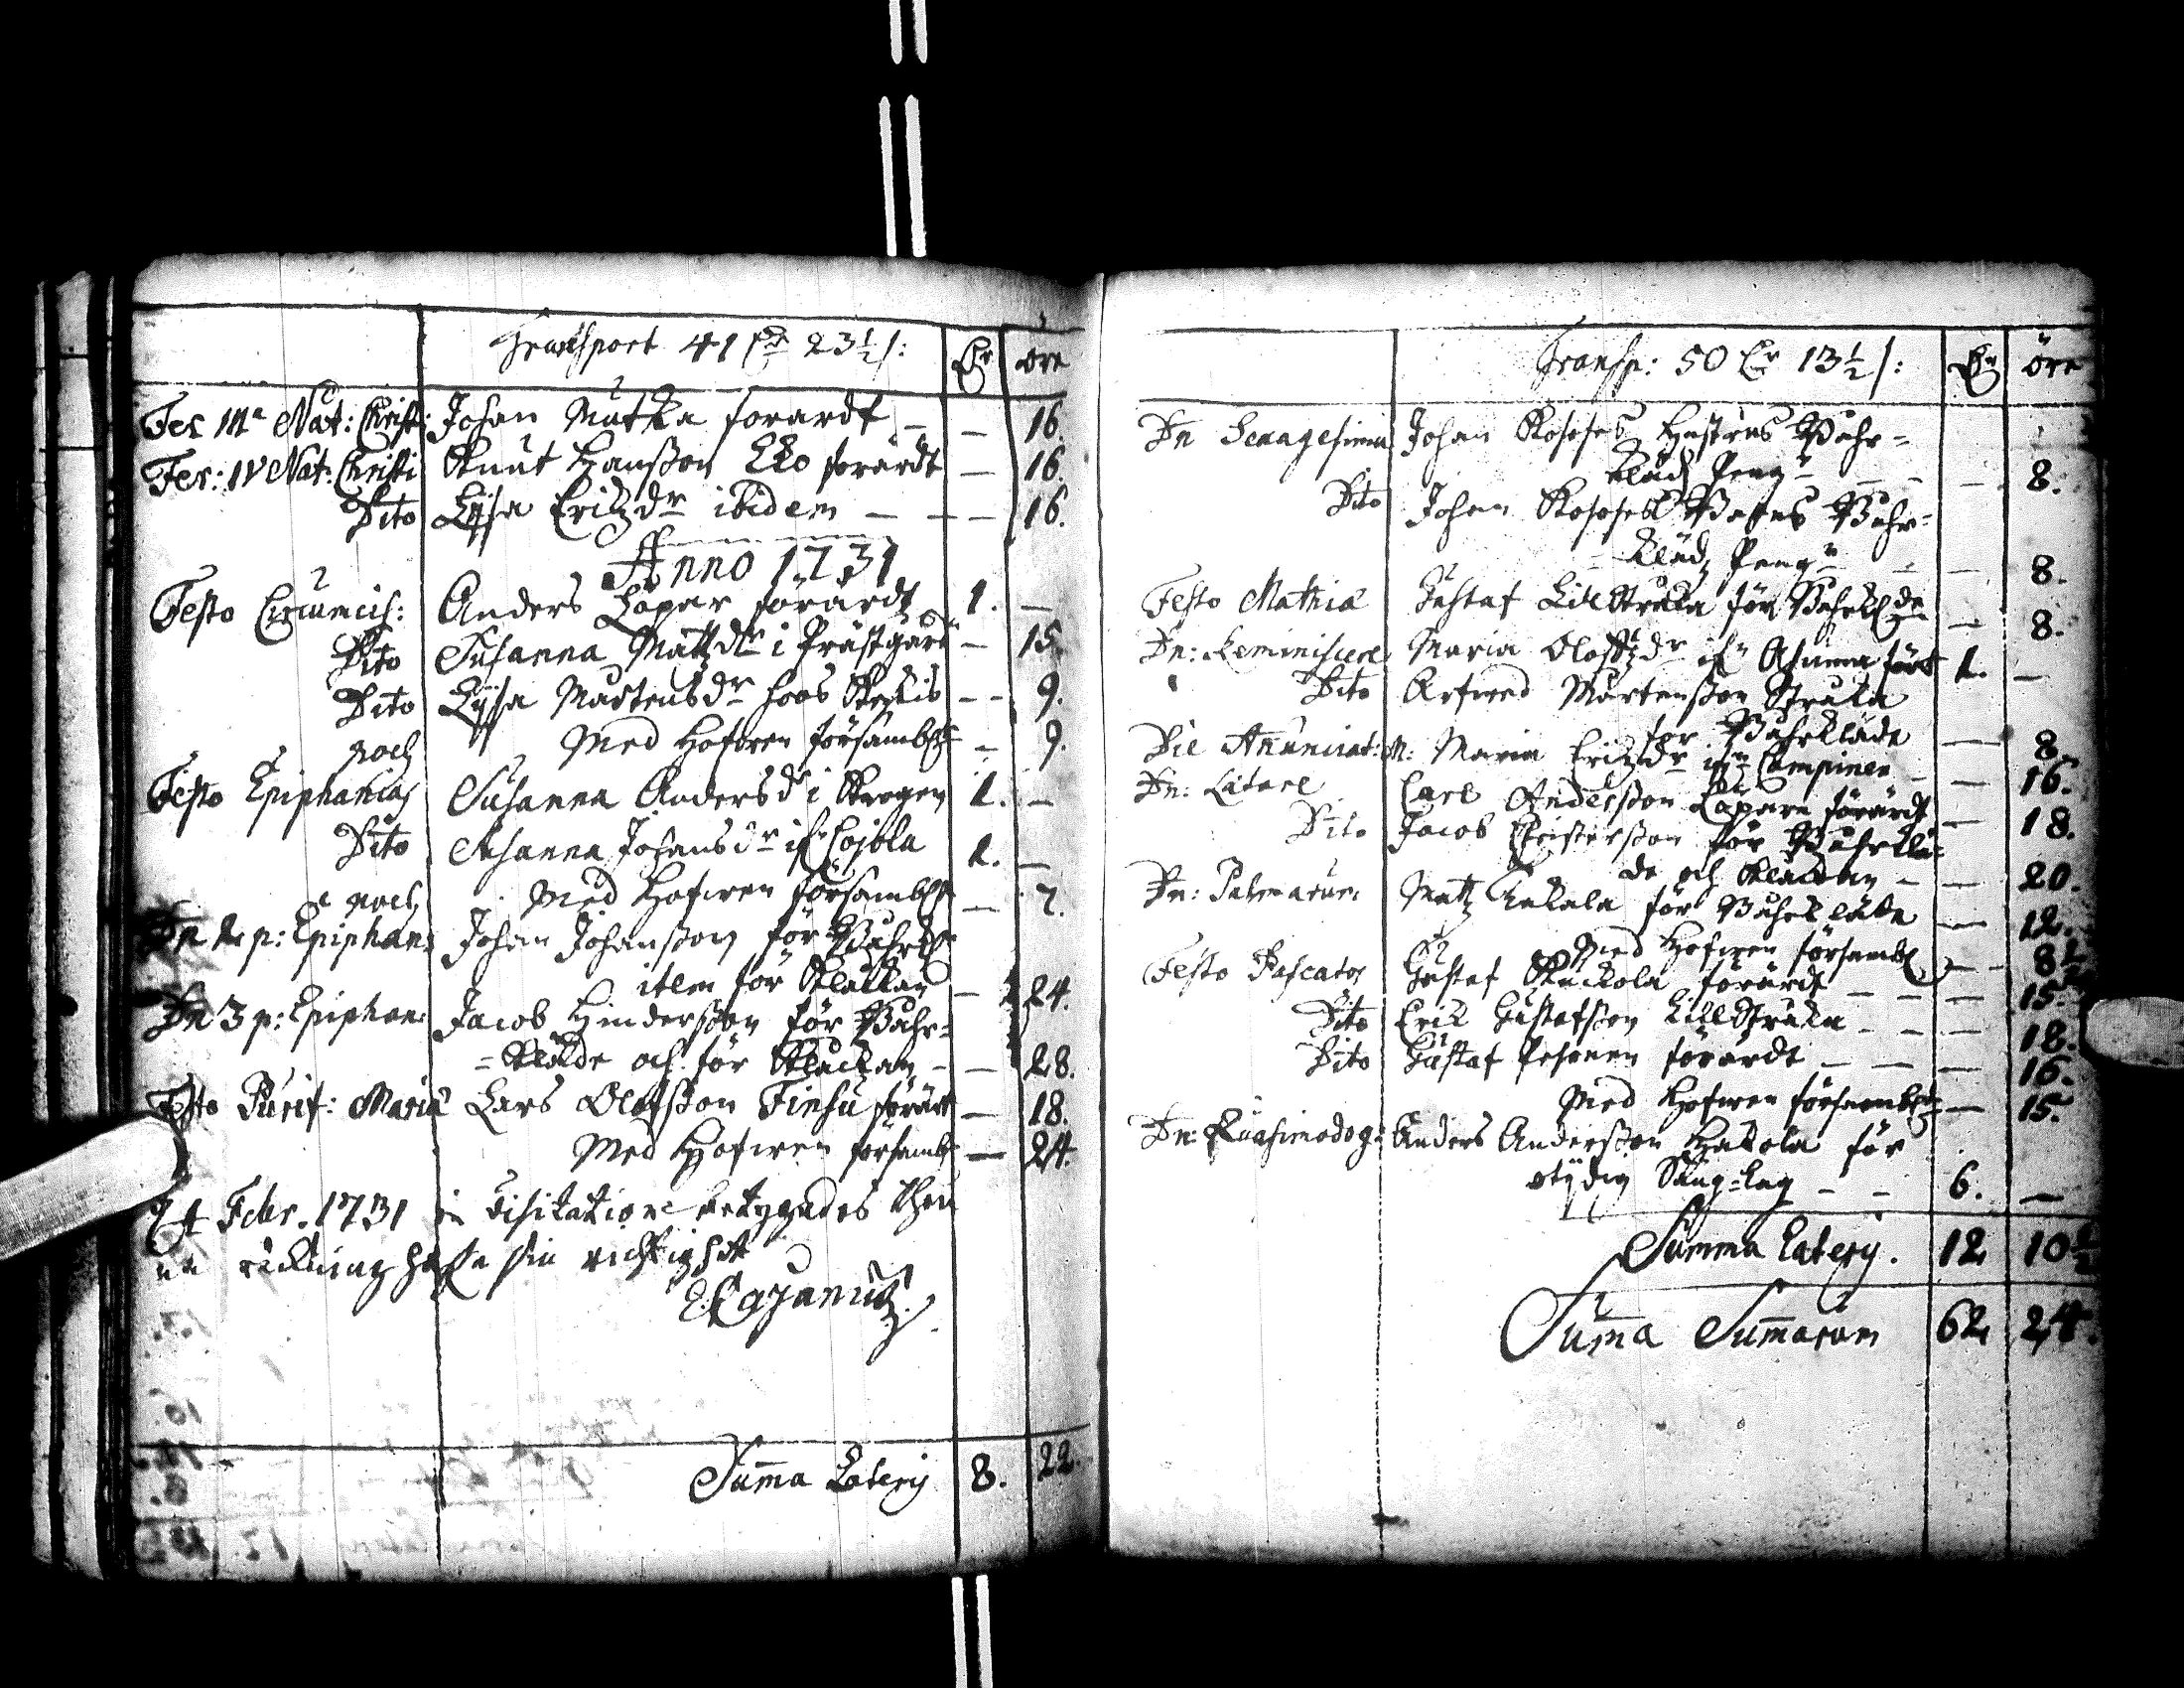 Transport 41 Dr 23½ s: Dr öre
Fer IIIa Nat: Christi: Johan Mutka förärdt — — 16.
Fer: IV Nat: Christi Knut Hanßon Eko förärdt — 16.
Dito Lÿsa Erichzdr ibidem — — — 16.
Anno 1731
Festo Circumcis: Anders Löpar förärdt 1. —
Dito Susanna Mattzdr i Prästgård — 15.
Dito Lÿsa Mårtensdr hoos — — 9.
noch Med Hofwen församblt — 9.
Festo Epiphanias Susanna Andersdr i Skogen 1. —
Dito Susanna Johansdr ifr Cojola 1. —
noch Med Hofwen församblt — 7.
Dn 2 p: Epiphan: Johan Johanßon för Bahrkl
item för Klåckan — 24.
Dn 3 p: Epiphan: Jacob Hinderßon för Bahr=
=kläde och för Klåckan — — 28.
Festo Purif: Mariæ Lars Olofßon Finsu förärt — 18.
Med Hofwen församb — 24.
24 Febr. 1731 in Visitatione betygades then
na räkning hafa sin richtighet
E: Cajanus
Summa Lateris 8. 22.
Transp: 50 Dr 13½ s: Dr öre
Dn Sexagesima Johan Hustrus Bahr=
kläds Peng — — — 8.
Dito Johan Bahr=
kläds Peng — — 8.
Festo Mathiæ Gustaf Lillstrula för Bahrklde — 8.
Dn: Reminiscere Maria Olofzdr ifr förärt 1. —
Dito Arfwed Mårtenßon Strula
för Bahrkläde — 8.
Die Anunciat: M: Maria Erichzdr ifrn Lampinen — — 16.
Dn: Lætare Carl Anderßon Löpare förärdt — 18.
Dito Jacob Christerßon för Bahrklä=
de och Klåckan — — 20.
Dn: Palmarum Matz för Bahrkläde — 12.
Med Hofwen försambl — 8½
Festo Pascatos Gustaf förärdt — — — 15.
Dito Erich Gustafßon Lillstrula — — — 18.
Dito Gustaf Pesonen förärdt — — — 16.
Med Hofwen församblt — 15.
Dn: Quasimodog: Anders Anderßon Hakola för
otÿdig Säng=lag — — 6. —
Summa Lateris. 12 10½
Suma Sumarum 62 24.